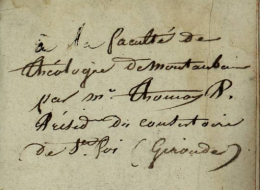 à la faculté de
théologie de montauban
par mr. Thomas P.
Présid du consistoire
de Ste foi (Gironde)